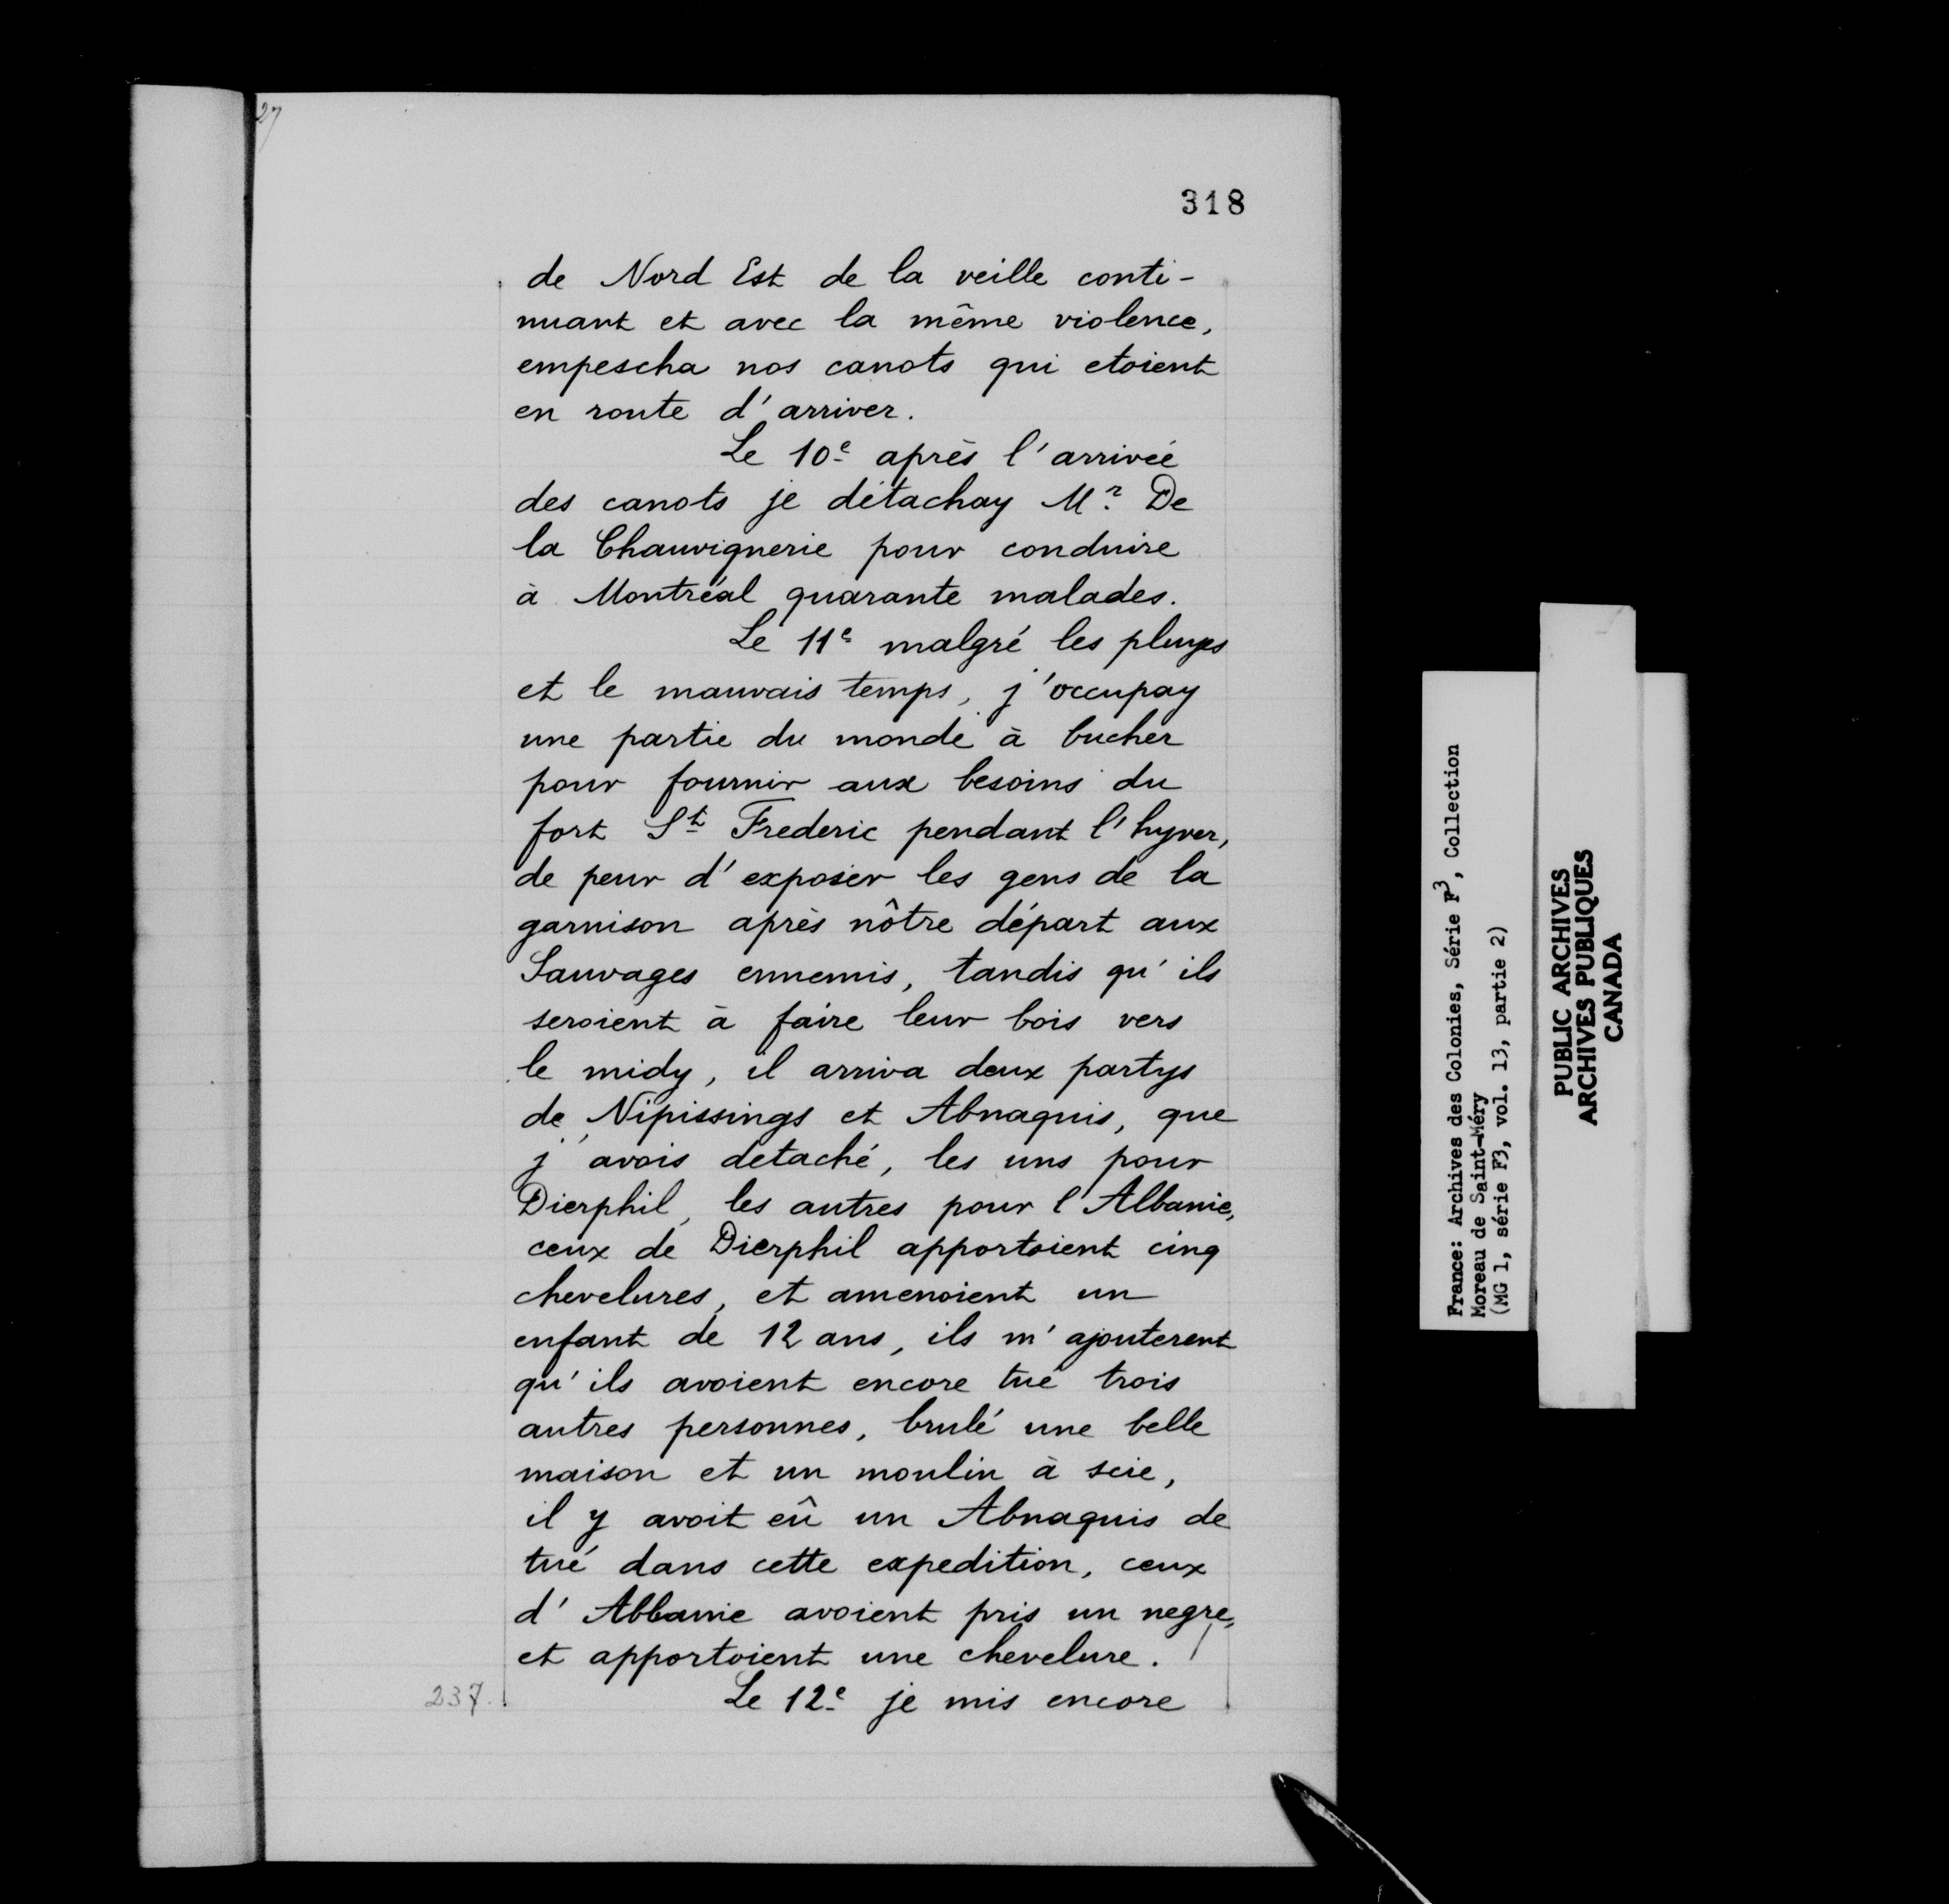 27
318
de Nord Est de la veille conti-
nuant et avec la même violence,
empescha nos canots qui etoient
en route d'arriver.
Le 10e après l'arrivée
des canots je détachay Mr. De
la Chauvignerie pour conduire
à Montréal quarante malades.
Le 11e malgré les pluyes
et le mauvais temps, j'occupay
une partie du monde à bucher
pour fournir aux besoins du
fort St Frederic pendant l'hyver,
de peur d'exposer les gens de la
garnison après nôtre départ aux
Sauvages ennemis, tandis qu'ils
seroient à faire leur bois vers
le midy, il arriva deux partys
de Nipissings et Abnaquis, que
j'avois detaché, les uns pour
Dierphil, les autres pour l'Albanie,
ceux de Dierphil apportoient cinq
chevelures, et amenoient un
enfant de 12 ans, ils m'ajouterent
qu'ils avoient encore tué trois
autres personnes, brulé une belle
maison et un moulin à scie,
il y avoit eû un Abnaquis de
tué dans cette expedition, ceux
d'Albanie avoient pris un negre,
et apportoient une chevelure. /
237. Le 12e je mis encore
France: Archives des Colonies, Série F3, Collection
Moreau de Saint-Méry
(MG 1, série F3, vol. 13, partie 2)
PUBLIC ARCHIVES
ARCHIVES PUBLIQUES
CANADA